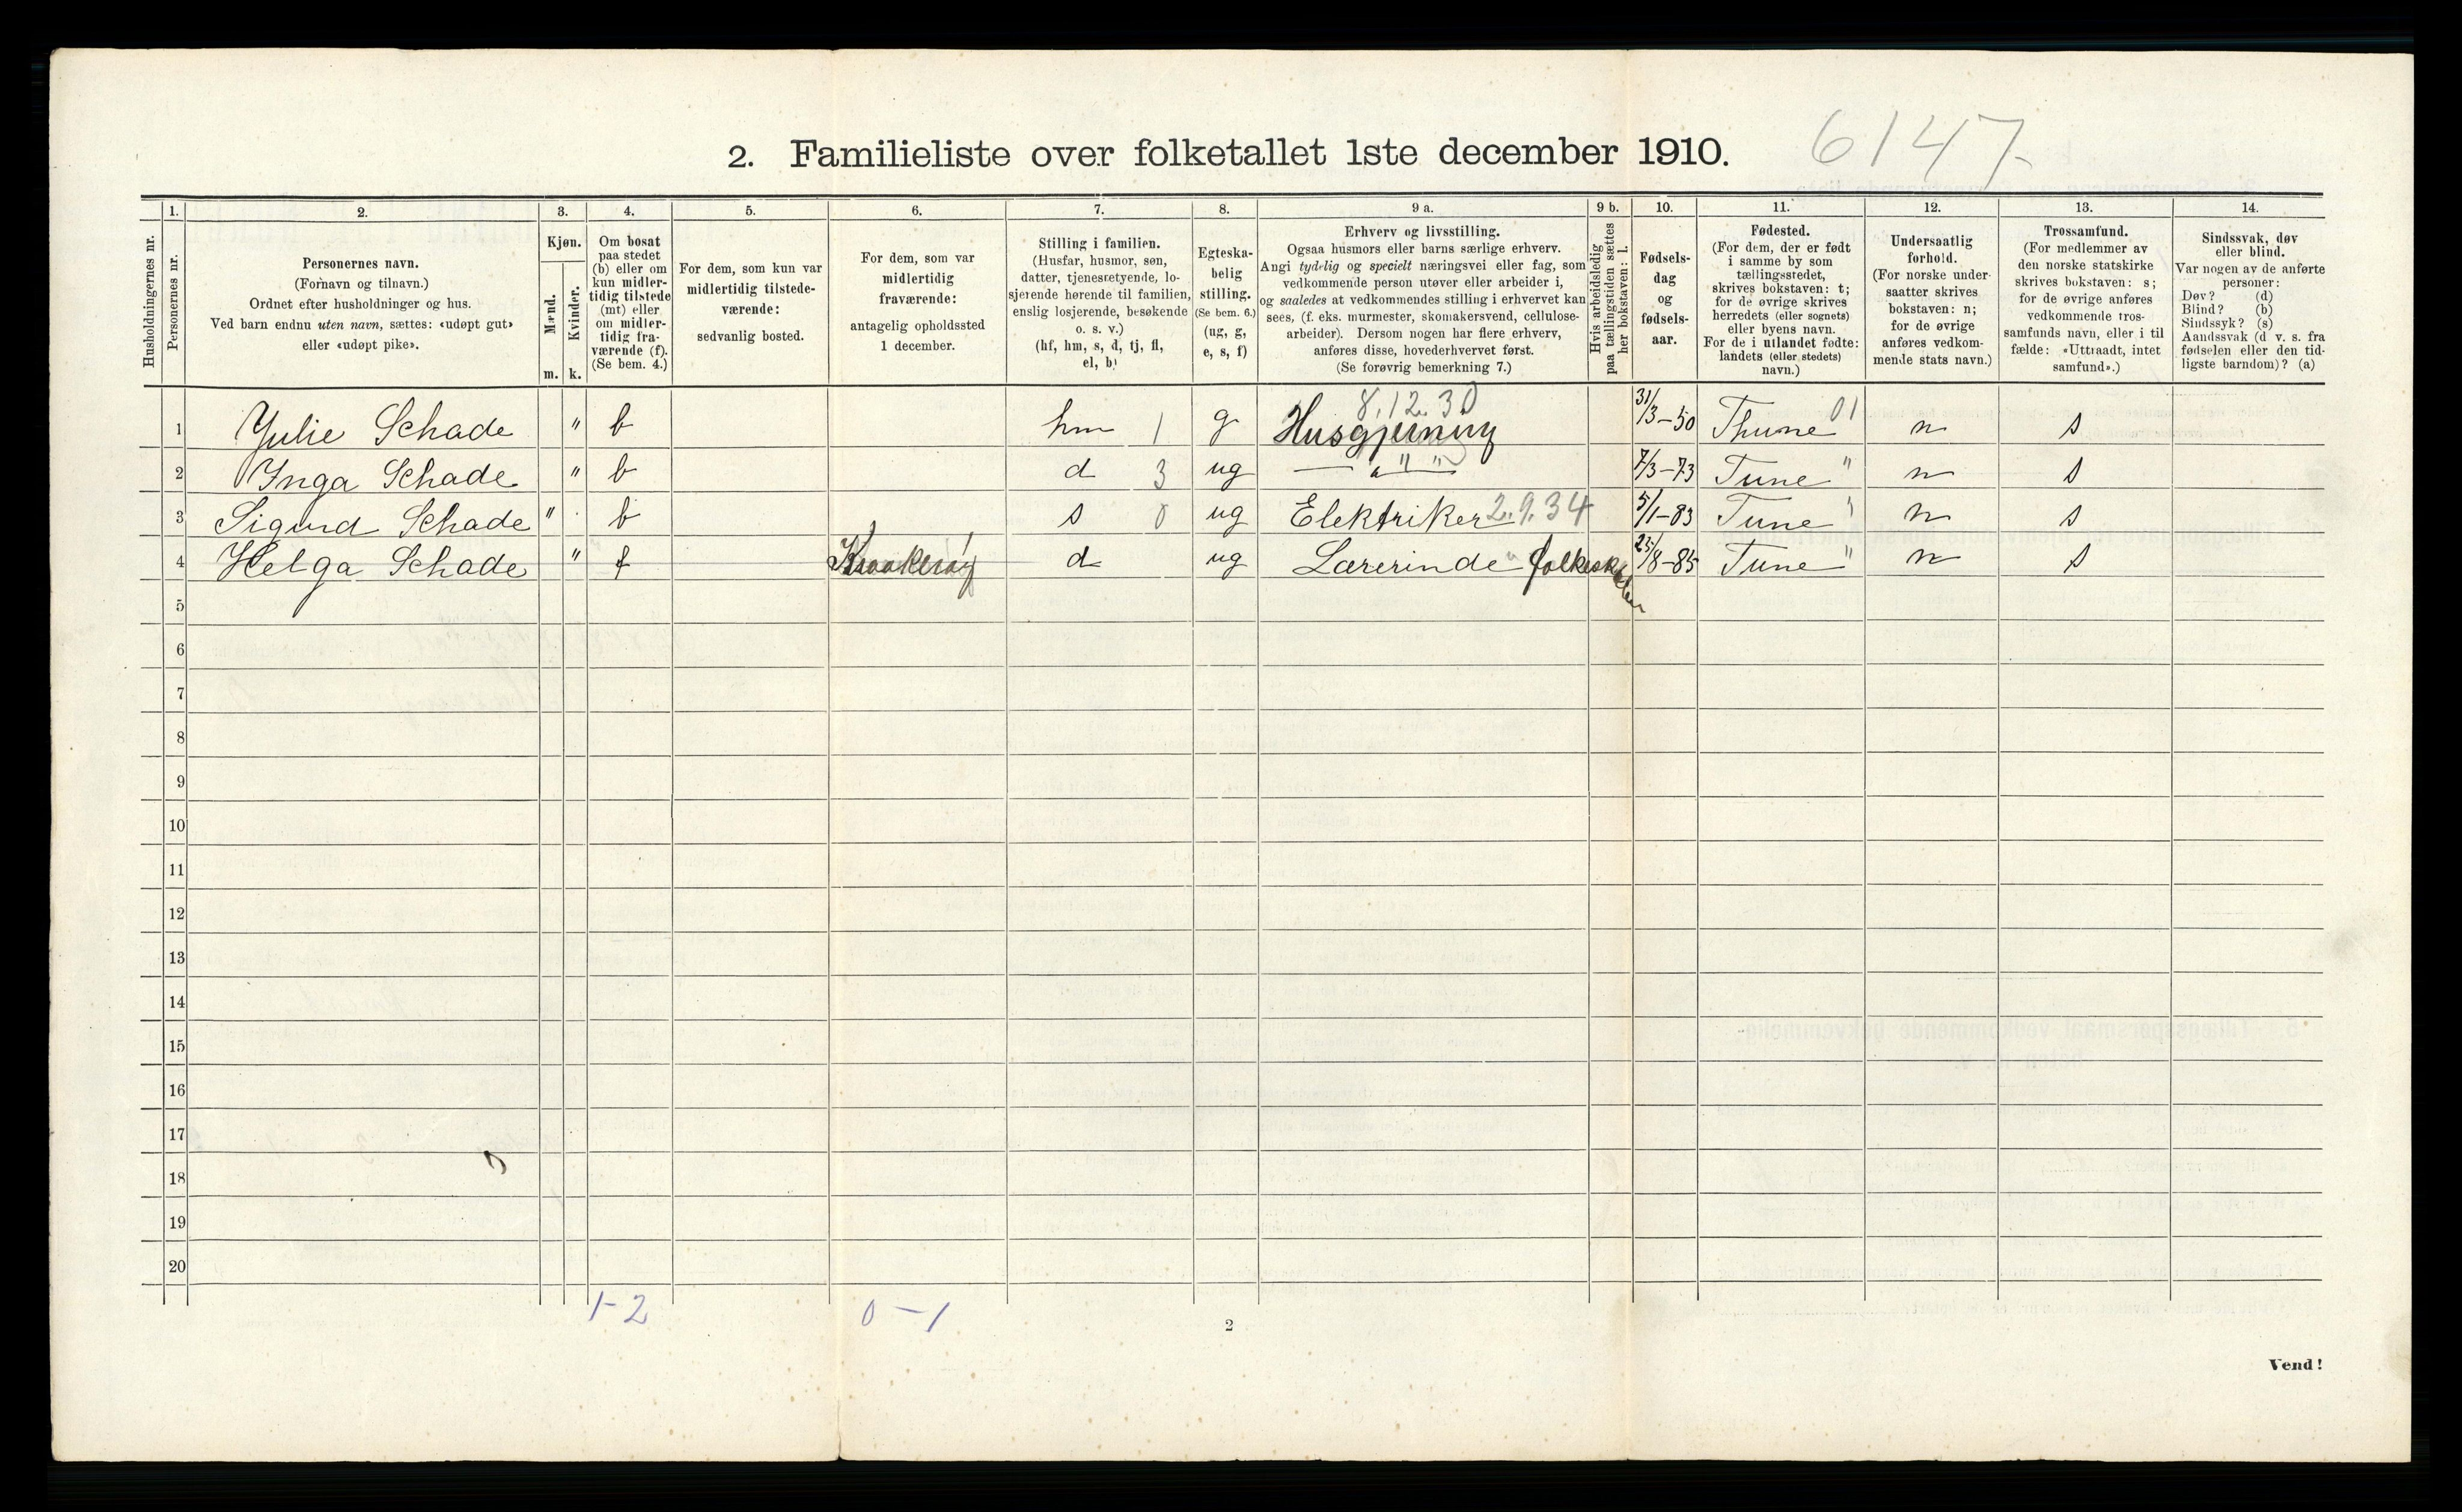 2. Familieliste over folketallet 1ste december 1910. 6147.
Husholdningernes nr.
1. Personernes nr.
2. Personernes navn.
(Fornavn og tilnavn.)
Ordnet efter husholdninger og hus.
Ved barn endnu uten navn, sættes: «udøpt gut»
eller «udøpt pike».
3. Kjøn.
Mænd. m.
Kvinder. k.
4. Om bosat
paa stedet
(b) eller om
kun midler-
tidig tilstede
(mt) eller
om midler-
tidig fra-
værende (f).
(Se bem. 4.)
5. For dem, som kun var
midlertidig tilstede-
værende:
sedvanlig bosted.
6. For dem, som var
midlertidig
fraværende:
antagelig opholdssted
1 december.
7. Stilling i familien.
(Husfar, husmor, søn,
datter, tjenestetyende, lo-
sjerende hørende til familien,
enslig losjerende, besøkende
o. s. v.)
(hf, hm, s, d, tj, fl,
el, b)
8. Egteska-
belig
stilling.
(Se bem. 6.)
(ug, g,
e, s, f)
9 a. Erhverv og livsstilling.
Ogsaa husmors eller barns særlige erhverv.
Angi tydelig og specielt næringsvei eller fag, som
vedkommende person utøver eller arbeider i,
og saaledes at vedkommendes stilling i erhvervet kan
sees, (f. eks. murmester, skomakersvend, cellulose-
arbeider). Dersom nogen har flere erhverv,
anføres disse, hovederhvervet først.
(Se forøvrig bemerkning 7.)
9 b. Hvis arbeidsledig
paa tællingstiden sættes
her bokstaven: l.
10. Fødsels-
dag
og
fødsels-
aar.
11. Fødested.
(For dem, der er født
i samme by som
tællingsstedet,
skrives bokstaven: t;
for de øvrige skrives
herredets (eller sognets)
eller byens navn.
For de i utlandet fødte:
landets (eller stedets)
navn.)
12. Undersaatlig
forhold.
(For norske under-
saatter skrives
bokstaven: n;
for de øvrige
anføres vedkom-
mende stats navn.)
13. Trossamfund.
(For medlemmer av
den norske statskirke
skrives bokstaven: s;
for de øvrige anføres
vedkommende tros-
samfunds navn, eller i til
fælde: «Uttraadt, intet
samfund».)
14. Sindssvak, døv
eller blind.
Var nogen av de anførte
personer:
Døv? (d)
Blind? (b)
Sindssyk? (s)
Aandssvak (d v. s. fra
fødselen eller den tid-
ligste barndom)? (a)
8.12.30
1 Yulie Schade " b hm 1 g Husgjerning 31/3-50 Thune 01 n s
2 Ynga Schade " b d 3 ug — " — 7/3-73 Tune " n s
3 Sigurd Schade " b s 0 ug Elektriker 2.9.34 5/1-83 Tune " n s
4 Helga Schade " f Kraakerøy d ug Lærerinde folkeskolen 25/8-85 Tune " n s
5
6
7
8
9
10
11
12
13
14
15
16
17
18
19
20
1-2 0-1
2
Vend!